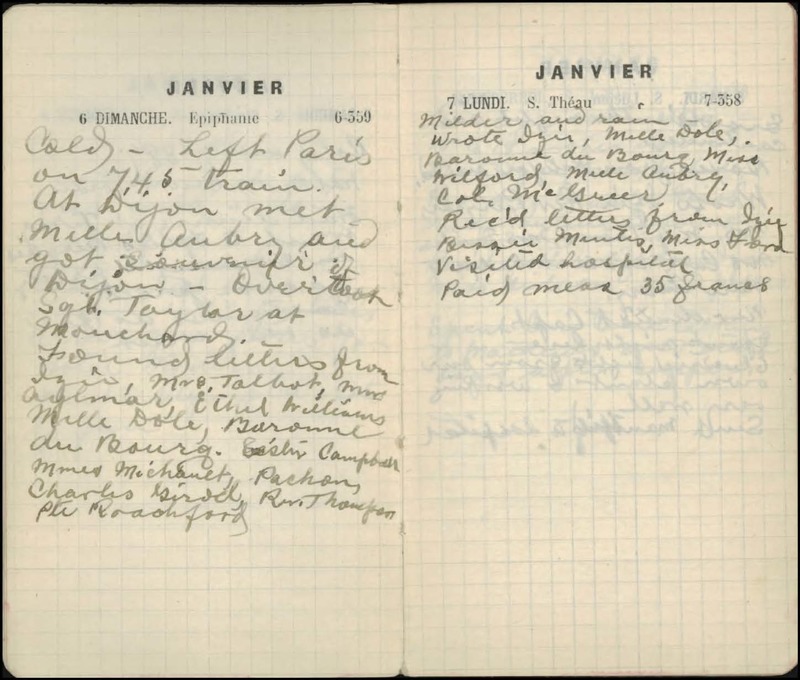 JANVIER
6 DIMANCHE. Epiphanie 6-359
Cold - Left Paris
on 7.45 train.
At Dijon met
Melle Aubry and
got souvenir of
Dijon - Overtook
Sgt. Taylor at
Mouchard.
Found letters from
Izie, Mrs. Talbot, Mrs
Aylmar, Ethel Williams
Melle Dole, Baronne
du Bourg. Campbell
Mmes Michault, Pachon,
Charles Girod, Rev. Thompson
Pte Roachford
JANVIER
7 LUNDI. S. Théau 7-358
Milder and rain
Wrote Izie, Melle Dole,
Baronne du Bourg, Miss
Wilford, Melle Aubry,
Col. McGreer
Rec'd letters from Izie
Bessie Miss Ford
Visited hospital
Paid mess 35 francs